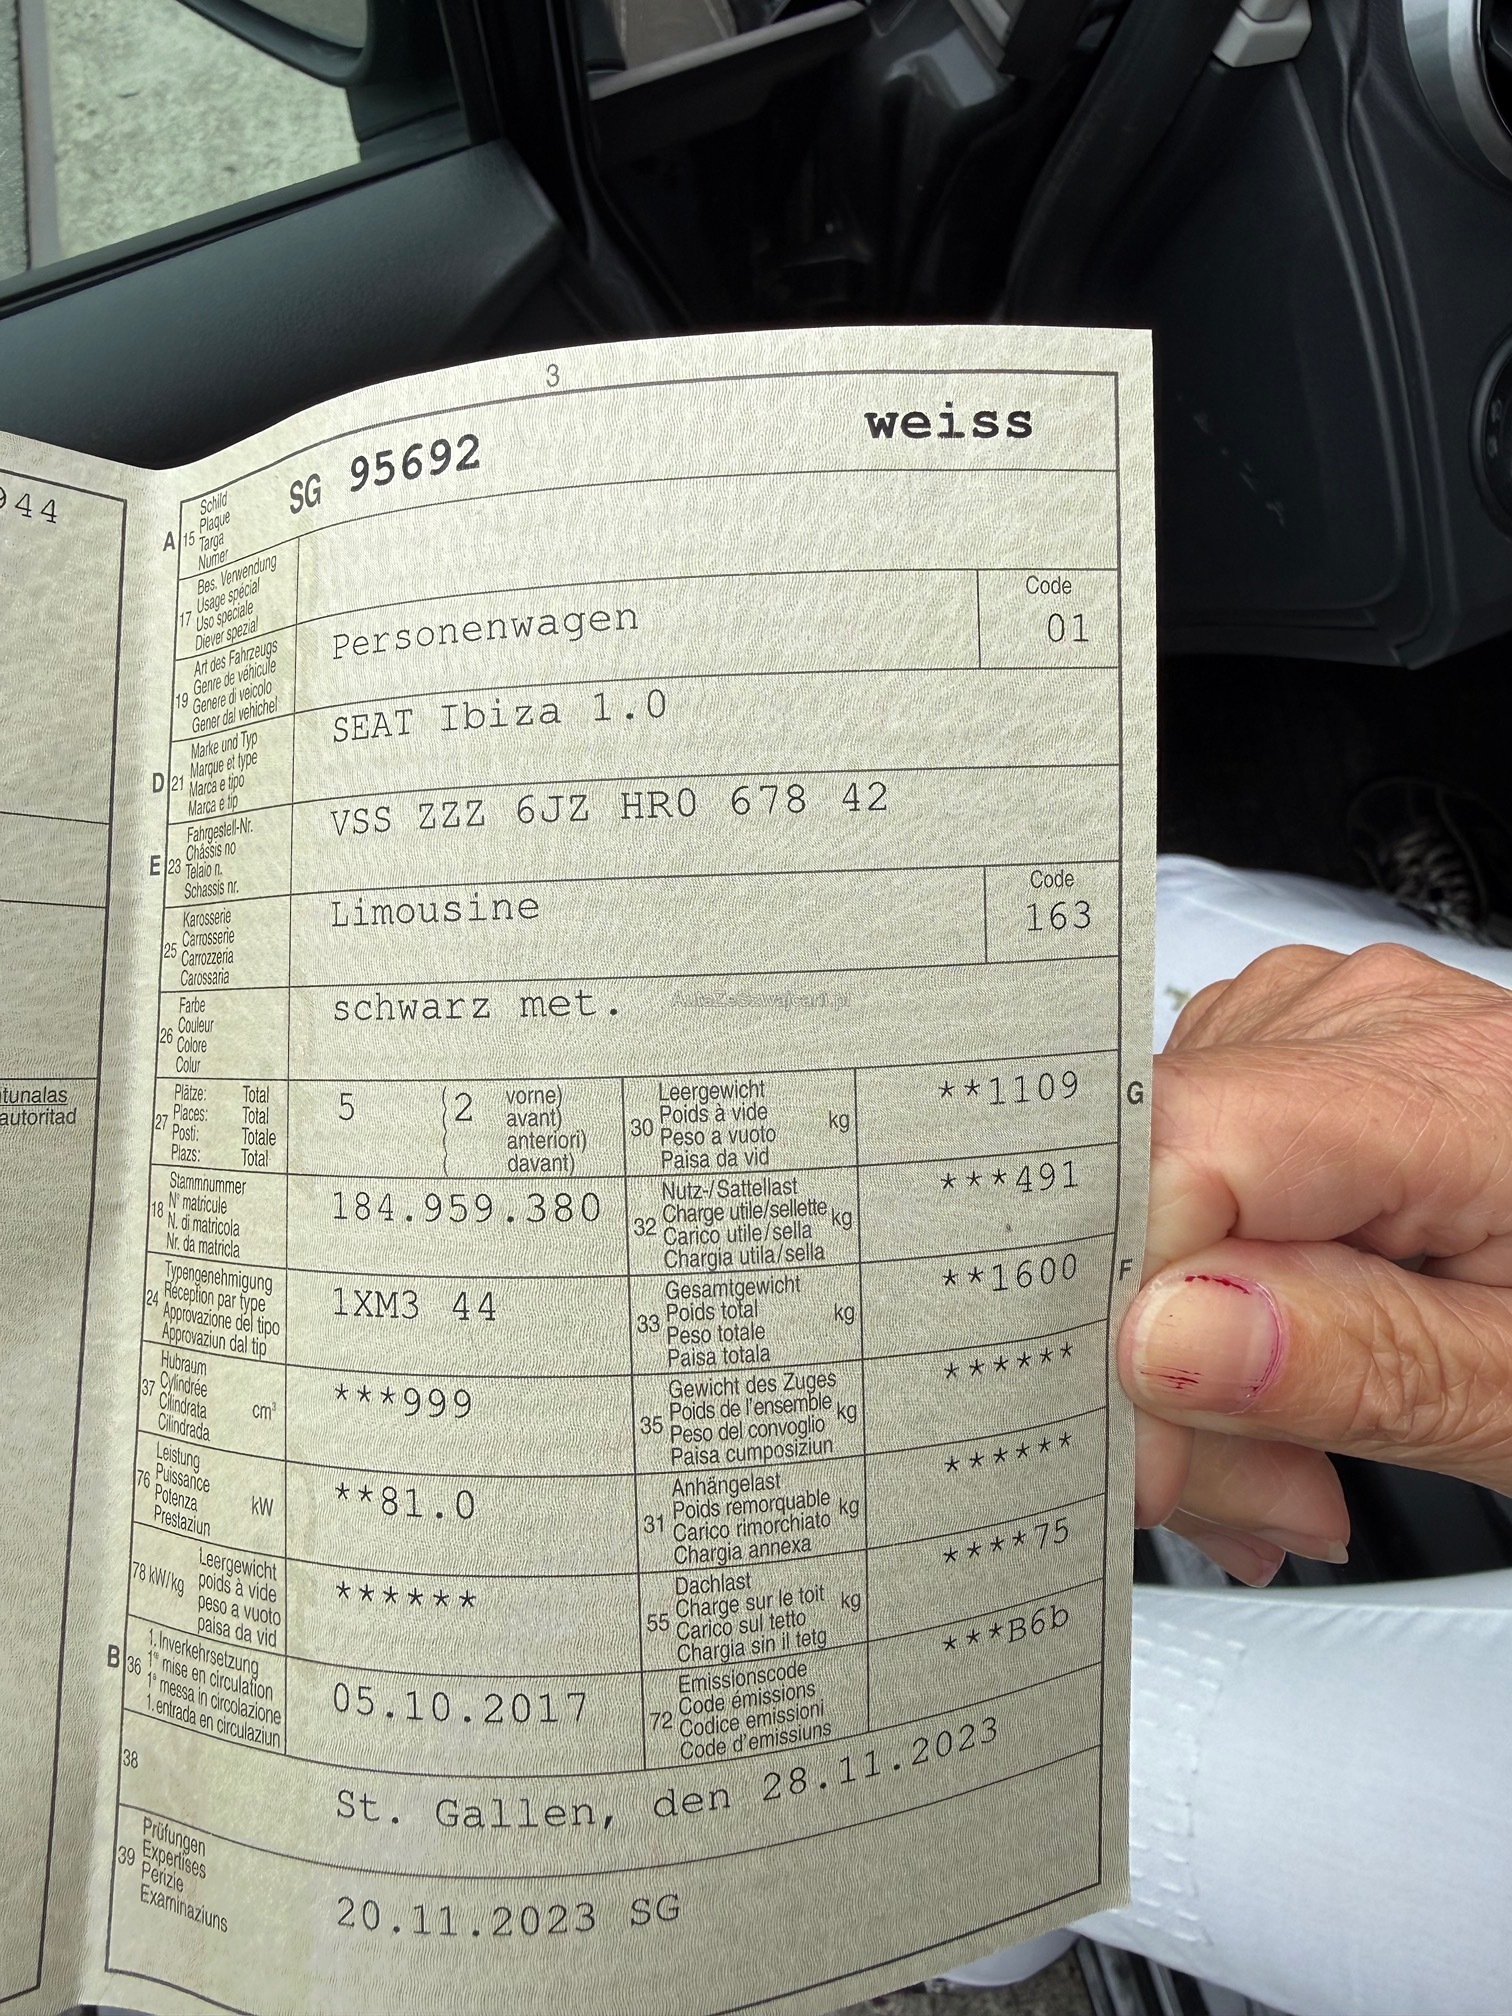 944
tunalas
autoritad
3
A 15 Schild Plaque Targa Numer SG 95692 weiss
17 Bes. Verwendung Usage spécial Uso speciale Diever spezial
19 Art des Fahrzeugs Genre de véhicule Genere di veicolo Gener dal vehichel Personenwagen Code 01
D 21 Marke und Typ Marque et type Marca e tipo Marca e tip SEAT Ibiza 1.0
E 23 Fahrgestell-Nr. Châssis no Telaio n. Schassis nr. VSS ZZZ 6JZ HR0 678 42
25 Karosserie Carrosserie Carrozzeria Carossaria Limousine Code 163
26 Farbe Couleur Colore Colur schwarz met.
27 Plätze: Total Places: Total Posti: Totale Plazs: Total 5 (2 vorne) avant) anteriori) davant)
30 Leergewicht Poids à vide Peso a vuoto Paisa da vid kg **1109 G
18 Stammnummer N° matricule N. di matricola Nr. da matricla 184.959.380
32 Nutz-/Sattellast Charge utile/sellette Carico utile/sella Chargia utila/sella kg ***491
24 Typengenehmigung Réception par type Approvazione del tipo Approvaziun dal tip 1XM3 44
33 Gesamtgewicht Poids total Peso totale Paisa totala kg **1600 F
37 Hubraum Cylindrée Cilindrata Cilindrada cm³ ***999
35 Gewicht des Zuges Poids de l'ensemble Peso del convoglio Paisa cumposiziun kg ******
76 Leistung Puissance Potenza Prestaziun kW **81.0
31 Anhängelast Poids remorquable Carico rimorchiato Chargia annexa kg ******
78 kW/kg Leergewicht poids à vide peso a vuoto paisa da vid ******
55 Dachlast Charge sur le toit Carico sul tetto Chargia sin il tetg kg ****75
B 36 1. Inverkehrsetzung 1re mise en circulation 1a messa in circolazione 1. entrada en circulaziun 05.10.2017
72 Emissionscode Code émissions Codice emissioni Code d'emissiuns ***B6b
38 St. Gallen, den 28.11.2023
39 Prüfungen Expertises Perizie Examinaziuns 20.11.2023 SG